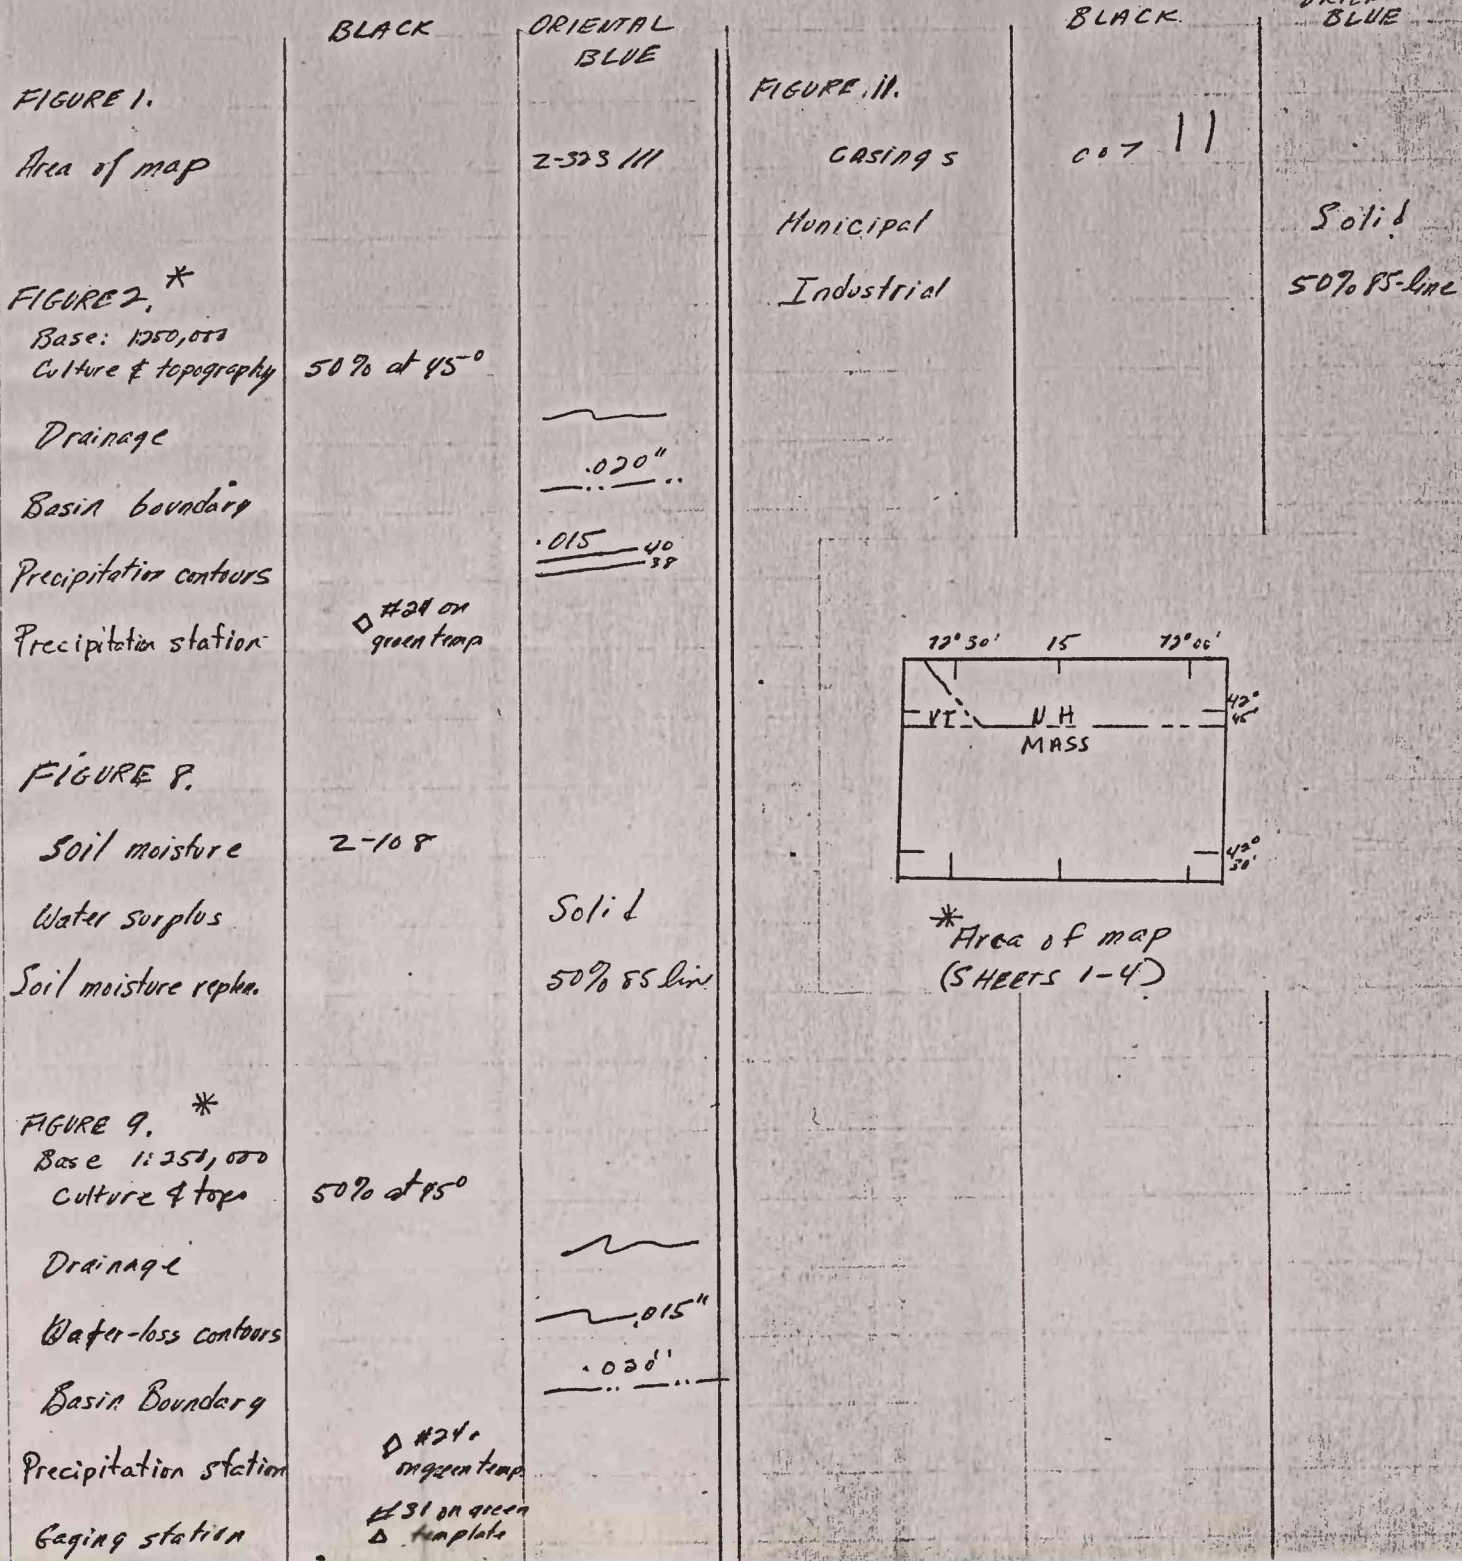 BLACK
ORIENTAL
BLUE
FIGURE 1.
Area of map
Z-323 ///
FIGURE 2. *
Base: 1:250,000
Culture & topography 50% at 45°
Drainage
.020"
Basin boundary
.015 40
38
Precipitation contours
#24 on
green temp
Precipitation station
FIGURE 8.
Soil moisture Z-108
Water surplus Solid
Soil moisture replen. 50% 85 line
FIGURE 9. *
Base 1:250,000
Culture & topo 50% at 45°
Drainage
Water-loss contours .015"
.020"
Basin Boundary
#24
on green temp.
Precipitation station
#31 on green
template
Gaging station
BLACK
BLUE
FIGURE 11.
Casings
Municipal Solid
Industrial 50% 85-line
72°30' 15 72°00'
42°
45'
VT. N H
MASS
42°
30'
* Area of map
(SHEETS 1-4)